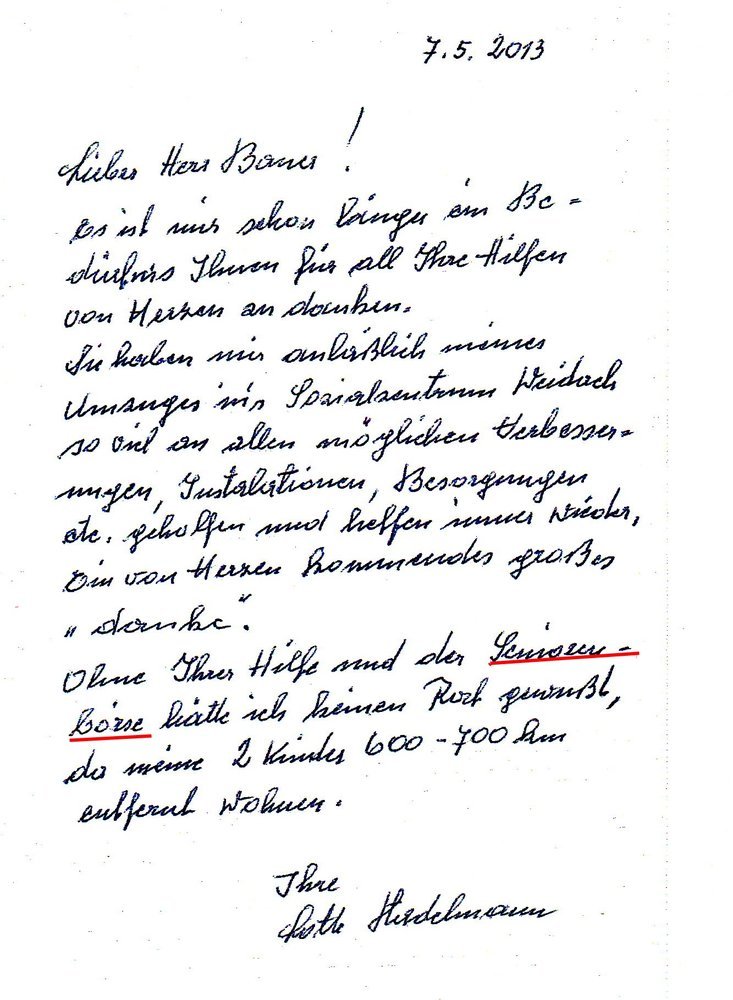 7.5. 2013
Lieber Herr Bauer!
Es ist mir schon länger ein Be-
dürfnis Ihnen für all Ihre Hilfen
von Herzen an danken.
Sie haben mir anläßlich meines
Umzuges in's Sozialzentrum Weidach
so viel an allen möglichen Verbesser-
ungen, Installationen, Besorgungen
etc. geholfen und helfen immer wieder,
Ein von Herzen kommendes großes
„danke".
Ohne Ihrer Hilfe und der Senioren-
börse hätte ich keinen Rat gewußt,
da meine 2 Kinder 600-700 km
entfernt wohnen.
Ihre